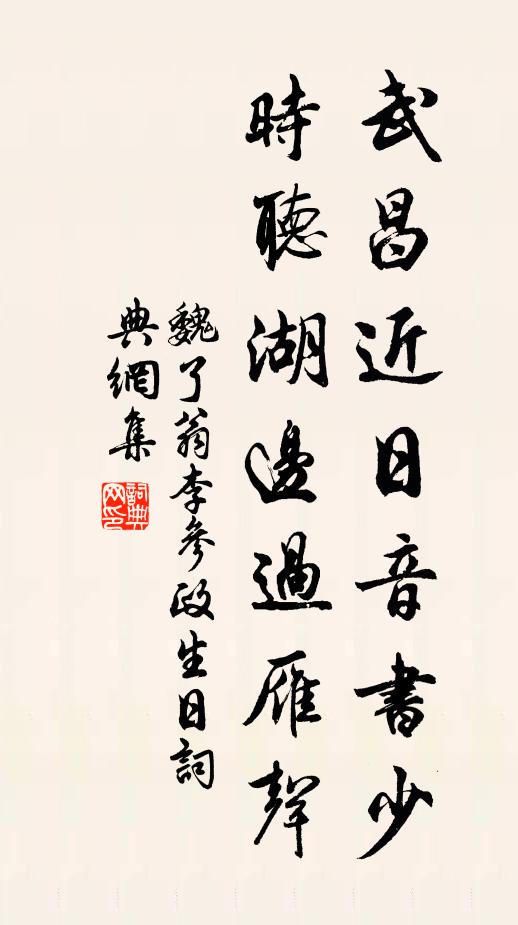 武昌近日音書少
時聽湖邊過雁聲
魏了翁李參政生日詞
典網集
詞典網印